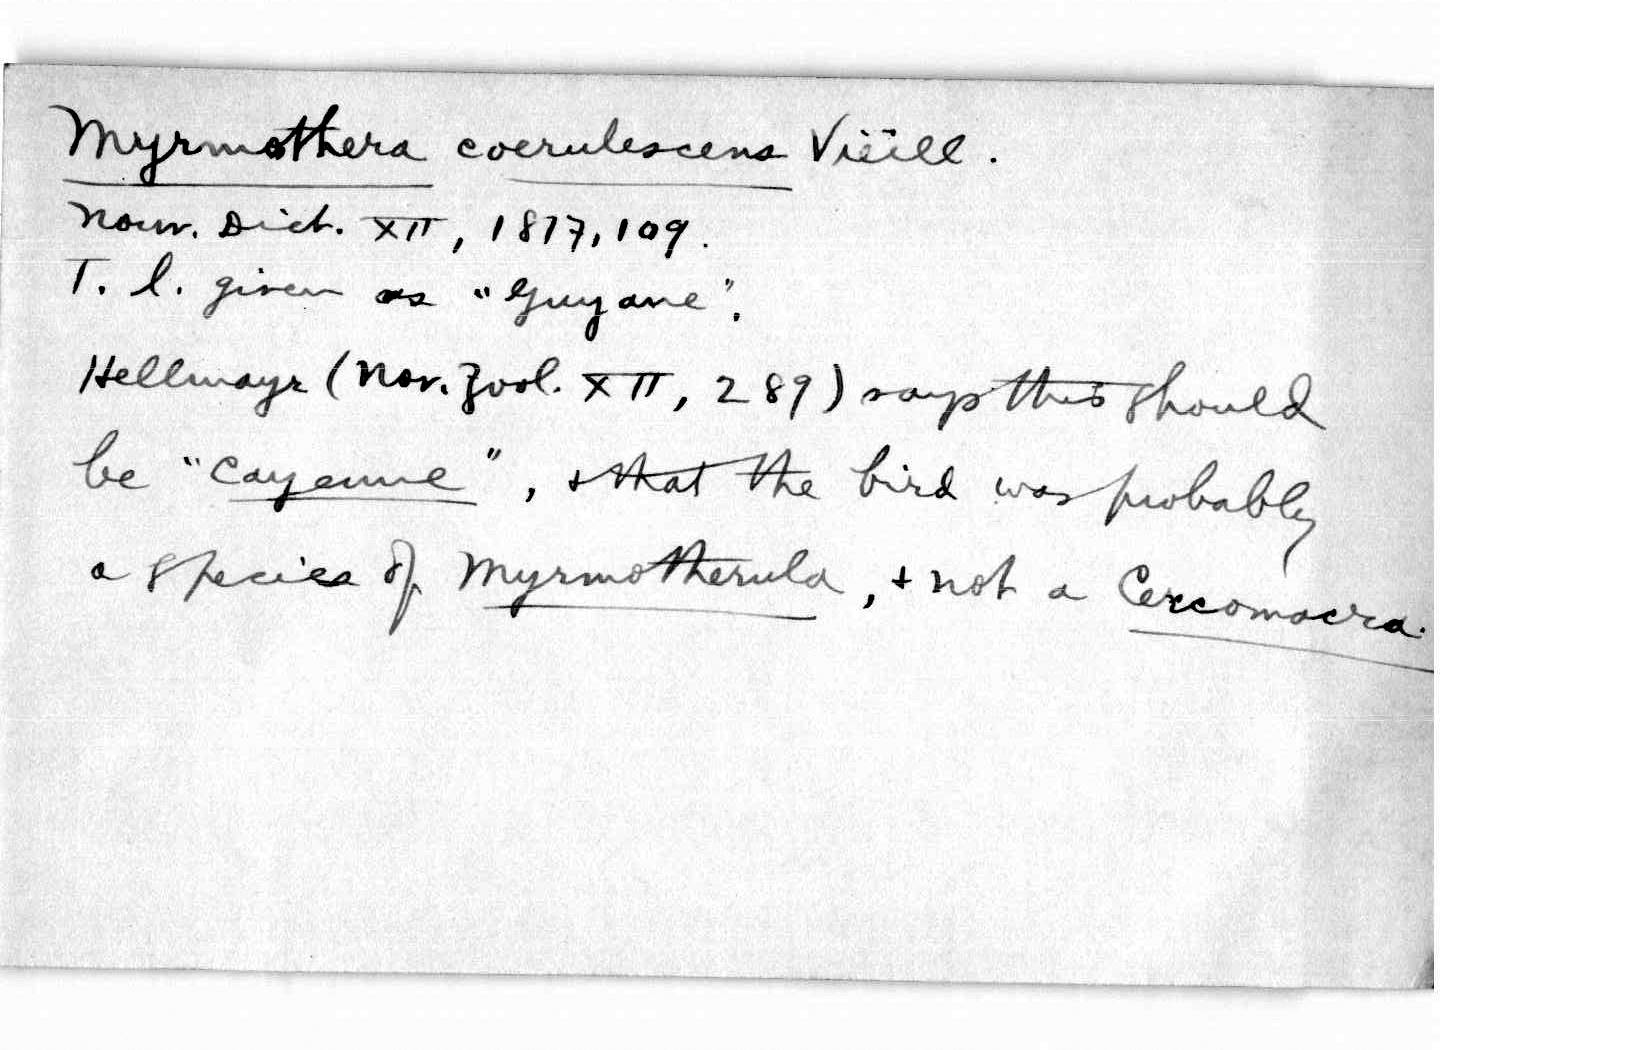 Myrmothera coerulescens Vieill.
Nouv. Dict. XII, 1817, 109.
T. l. given as "Guyane".
Hellmayr (Nov. Zool. XII, 289) says this should
be "Cayenne", + that the bird was probably
a species of Myrmotherula, + not a Cercomacra.